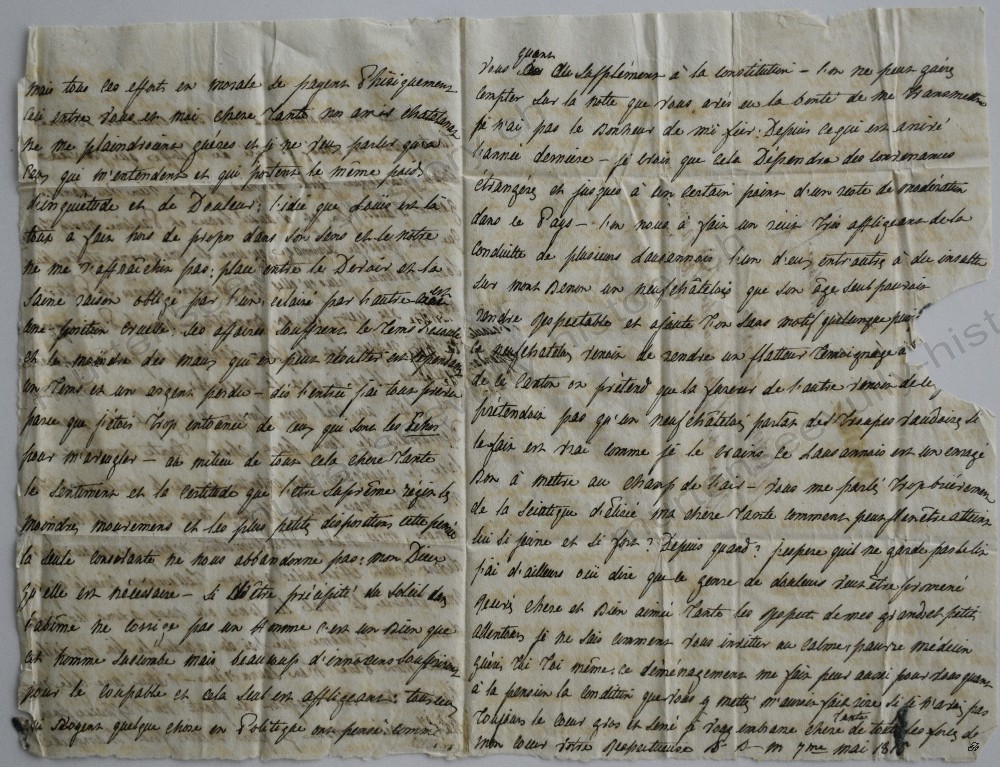 mais tous ces efforts en morale se payent Phisiquement
Ceci entre vous et moi chere Tante nos amis
ne me plaindroient guéres et je ne veux parler qu'a
Ceux que m'entendent et qui portent le même poids
d'inquietude et de Douleur: l'idée que Louis est là
tout à fait hors de propos dans son sens et le notre
ne me raffraichit pas: placé entre le Devoir et la
Saine raison obligé par l'un eclairé par l'autre c'est
une position cruelle: ses affaires souffrent le tems s'ecoule
et le moindre des maux qui en peut resulter est
un tems et un argent perdu – dès l'entrée j'ai tout
parce que j'etois trop entourée de ceux qui sont les Echos
pour m'aveugler – au milieu de tout cela chere Tante
le sentiment et la certitude que l'etre Suprême régit les
moindres mouvemens et les plus petites dispositions cette pensée
la seule consolante ne nous abbandonne pas: mon Dieu
qu'elle est nécéssaire – Si d'être précipité du soleil dans
l'abîme ne corrige pas un Homme c'est un Bien que
cet homme sucombe mais beaucoup d'innocens souffriront
pour le coupable et cela seul est affligeant: tous ceux
qui Rogent quelque chose en Politique ont pensé comme
vous quant au supplément à la constitution – l'on ne peut guéres
Compter sur la notte que vous avés eu la bonté de me transmettre
je n'ai pas le Bonheur de m'i fier: Depuis ce qui est arrivé
l'année derniere – je crois que cela Dépendra des convenances
étrangéres et jusques à un certain point d'un reste de modération
dans le Pays – l'on nous à fait un récit très affligeant de la
conduitte de plusieurs Lausannois l'un d'eux entr'autres à du insulté
sur mont Benon un neufchâtelois que son âge seul pouvoit
rendre Respectable et ajoute t'on sans motif quelconque
le neufchatelois venoit de rendre un flatteur temoignage
de ce Canton on prétend que la fureur de l'autre venoit de
prétendoit pas qu'un neufchâtelois parlat des troupes vaudoises si
le fait est vrai comme je le crains ce Lausannois est un enragé
Bon à mettre au champ de l'air – vous me parlés trop briévement
de la Sciatique d'Elisée ma chere Tante comment peut il en être atteint
lui si jeune et si fort? Depuis quand? j'espere qu'il ne garde pas le lit
j'ai d'ailleurs ouï dire que ce genre de douleurs veut être promené
chere et Bien aimée Tante les de mes grands et petits
attentions je ne sais comment vous inviter au calme: pauvre médecin
guéris toi toi même: ce déménagement me fait peur aussi pour vous quant
à la pension la condition que vous y mettés m'auroit fait rire si je n'avois pas
toujours le cœur gros et serré je vous embrasse chere Tante de toutes les forces de
mon cœur votre Respectueuse 7me mai 1815